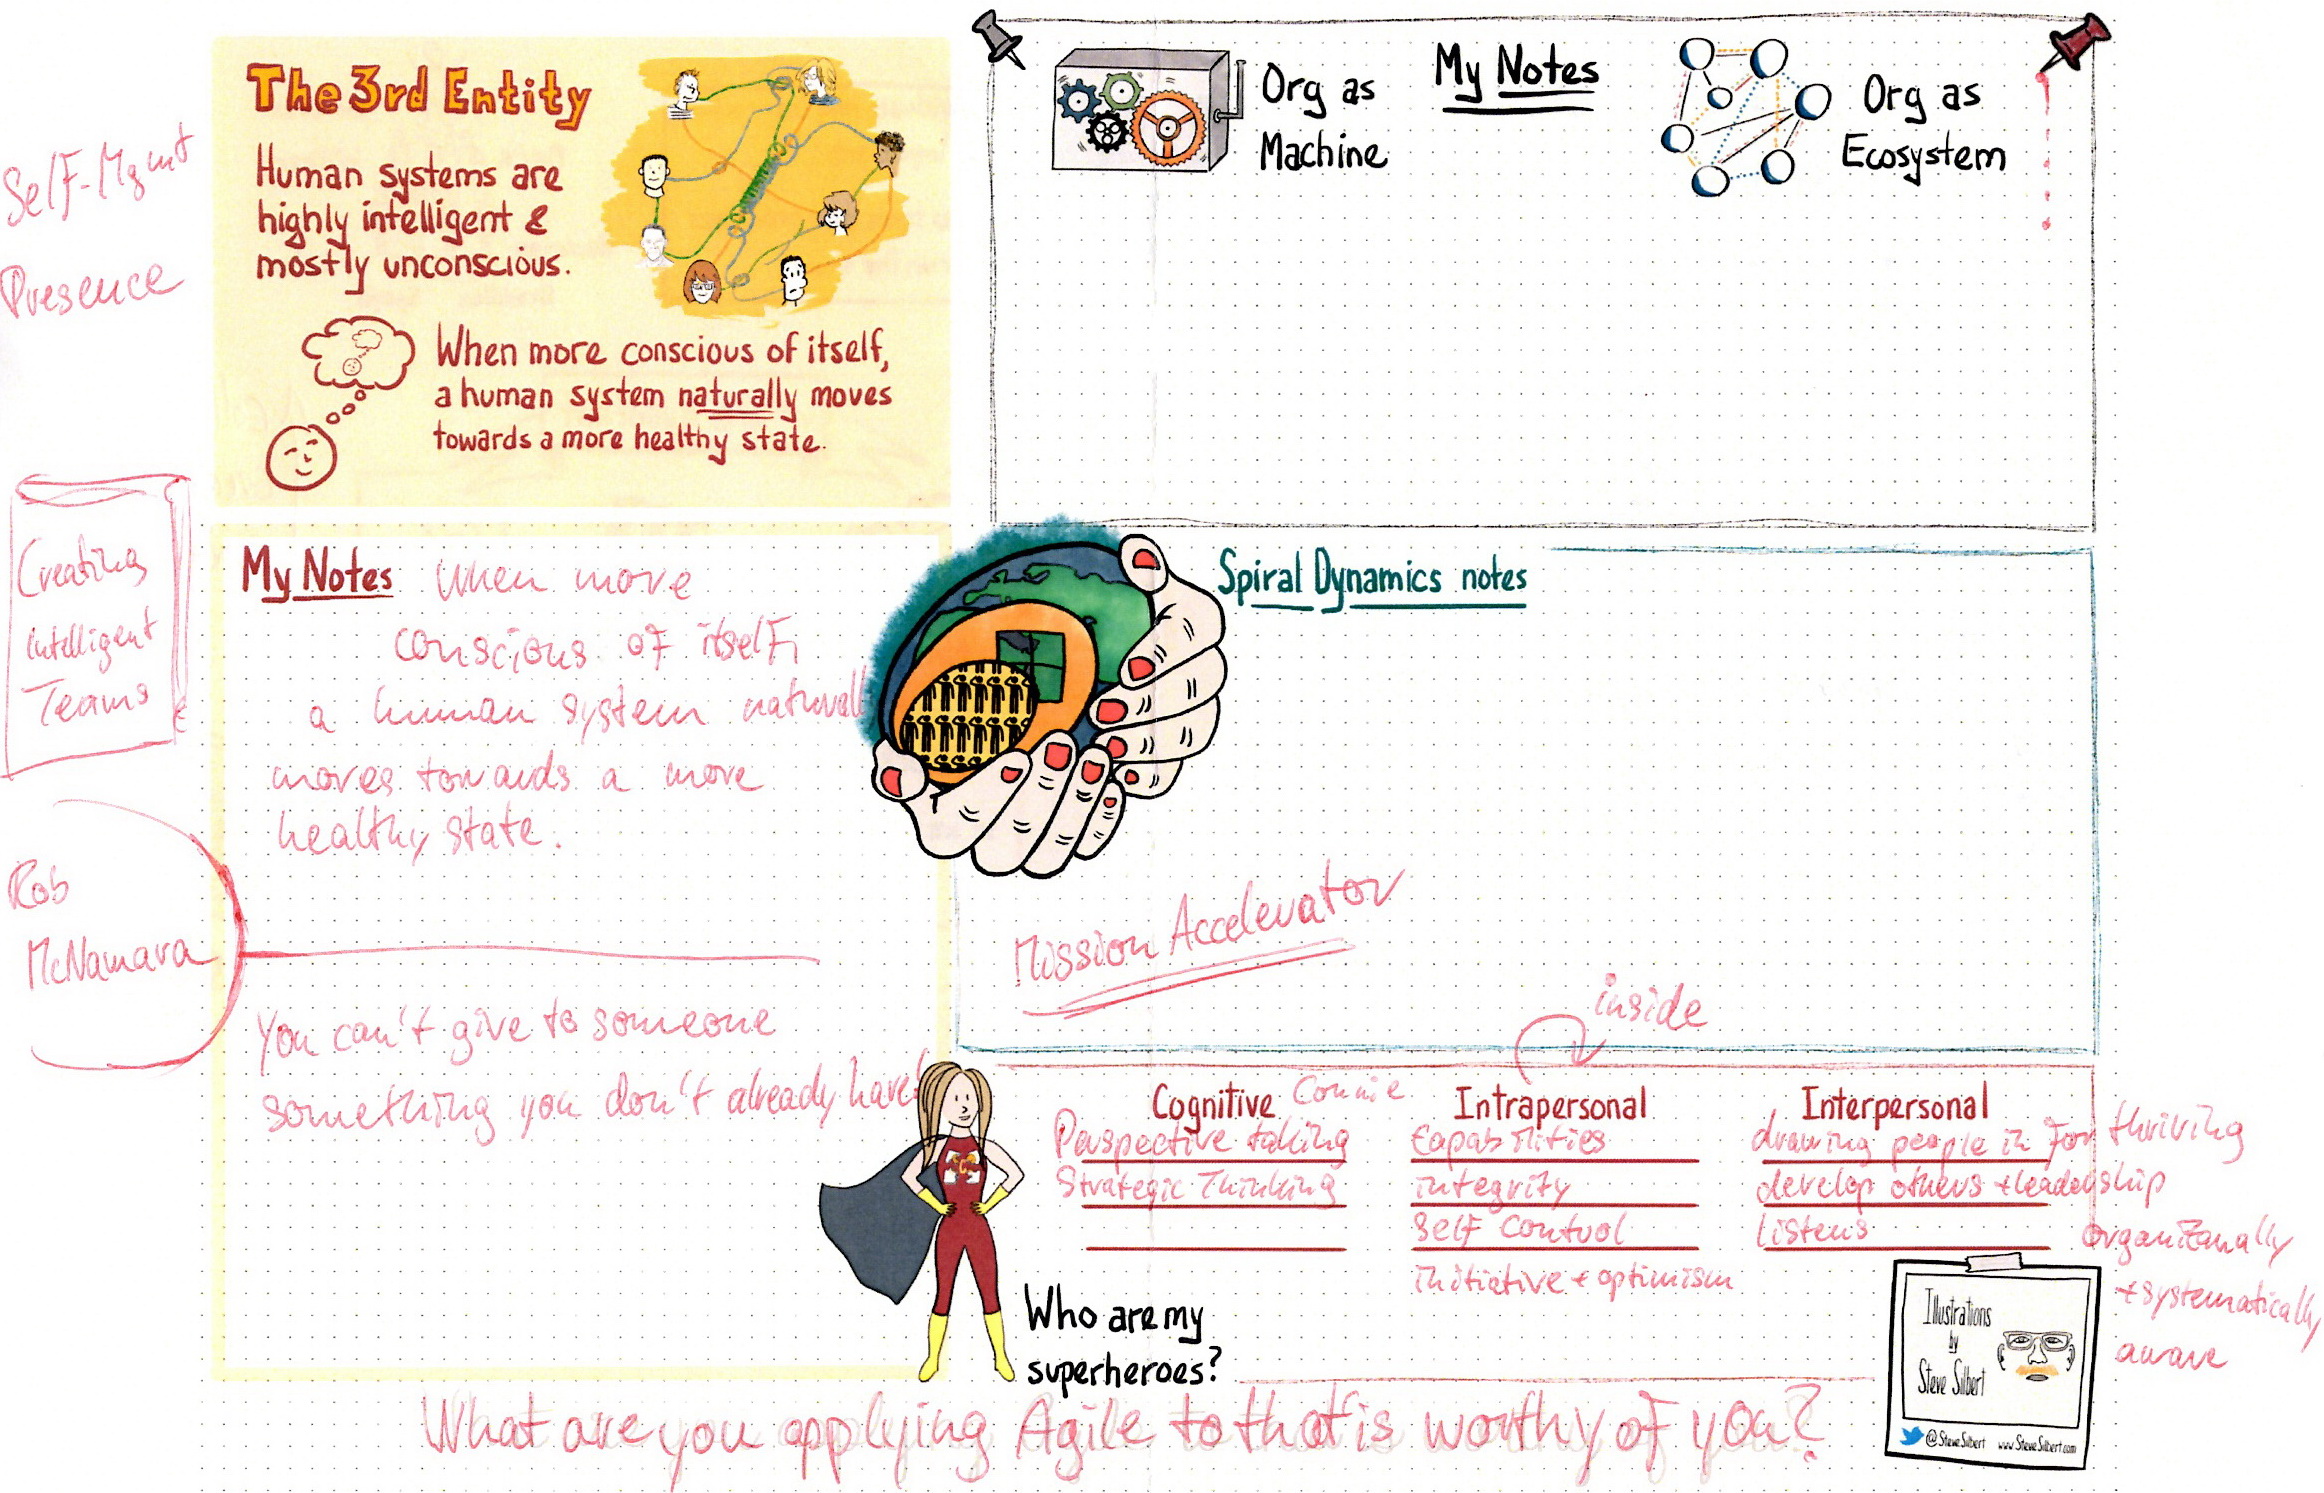 The 3rd Entity
Human systems are
highly intelligent &
mostly unconscious.
When more conscious of itself,
a human system naturally moves
towards a more healthy state.
Self-Mgmt
Presence
Org as
Machine
My Notes
Org as
Ecosystem
Creating
Intelligent
Teams
My Notes
When more
conscious of itself,
a human system naturall
moves towards a more
healthy state.
Rob
McNamara
You can't give to someone
something you don't already have!
Spiral Dynamics notes
Mission Accelerator
inside
Cognitive
Connie
Perspective taking
Strategic Thinking
Intrapersonal
Capabilities
integrity
Self Control
initiative + optimism
Interpersonal
drawing people in for thriving
develop others + leadership
listens
organizanally
+ systematically
aware
Who are my
superheroes?
Illustrations
by
Steve Silbert
@SteveSilbert www.SteveSilbert.com
What are you applying Agile to that is worthy of you?